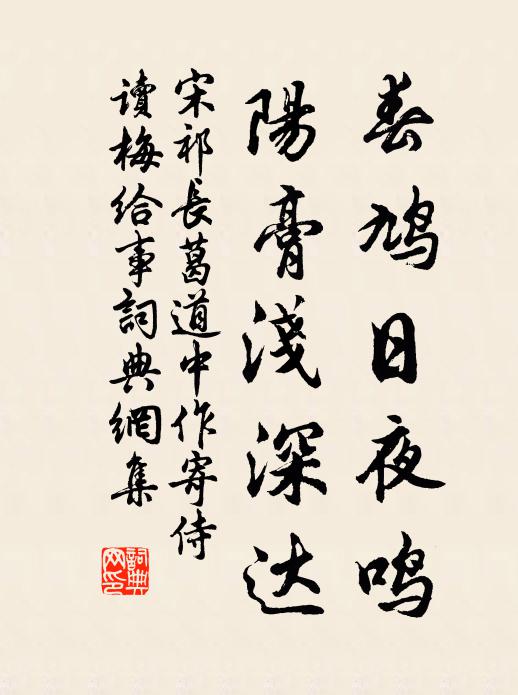 春鳩日夜鸣
陽膏淺深达
宋祁長葛道中作寄侍
讀梅給事詞典網集
詞典网印